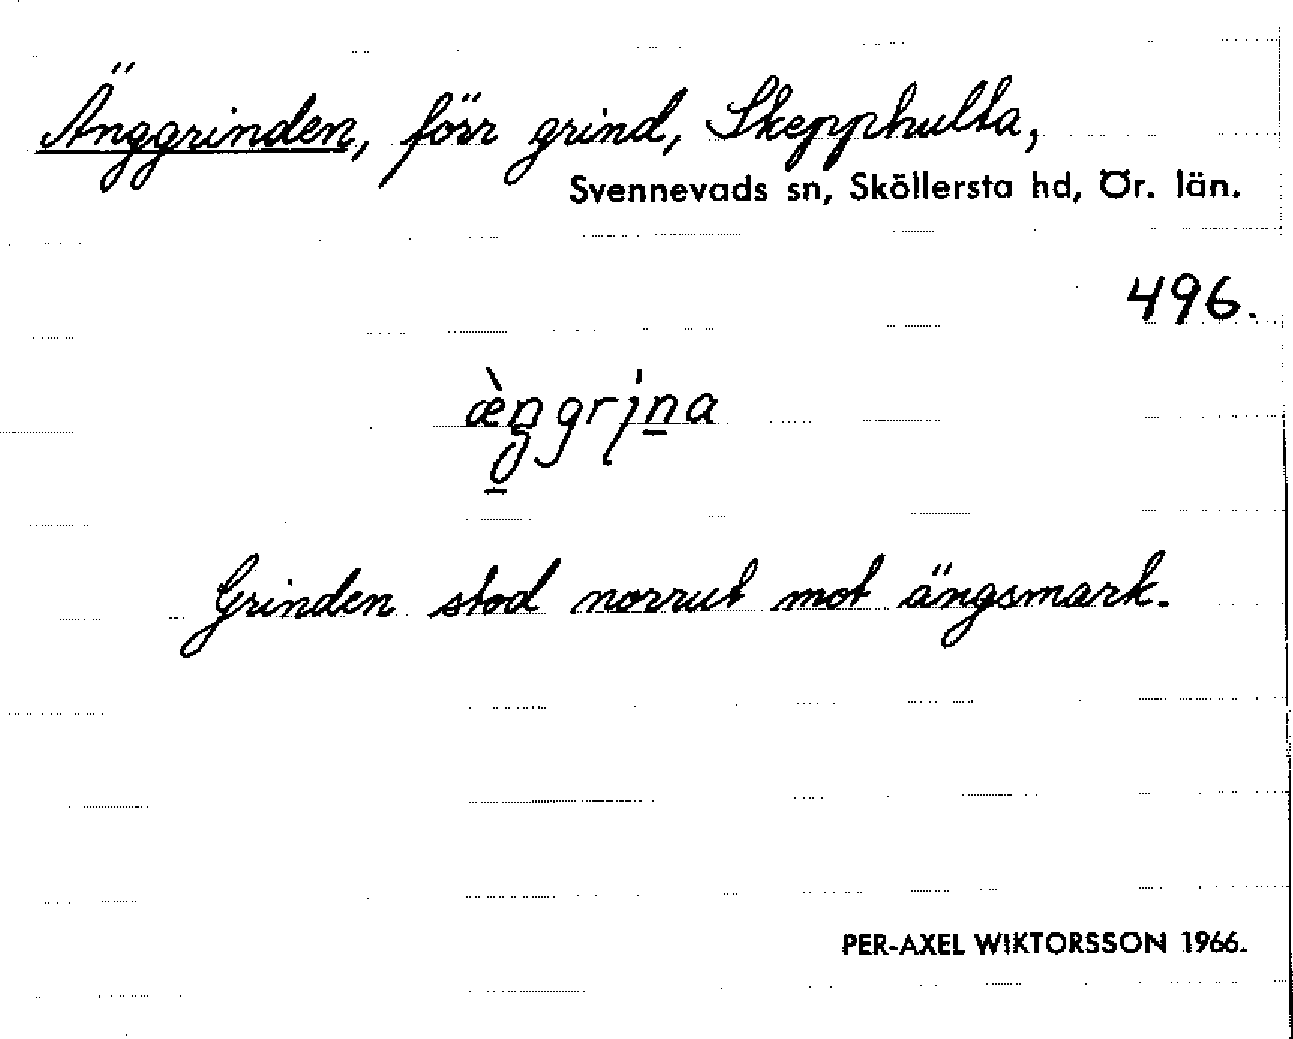 Änggrinden, förr grind, Skepphulta,
Svennevads sn, Sköllersta hd, Ör. län.
496.
æ̀ŋgrina
Grinden stod norrut mot ängsmark.
PER-AXEL WIKTORSSON 1966.